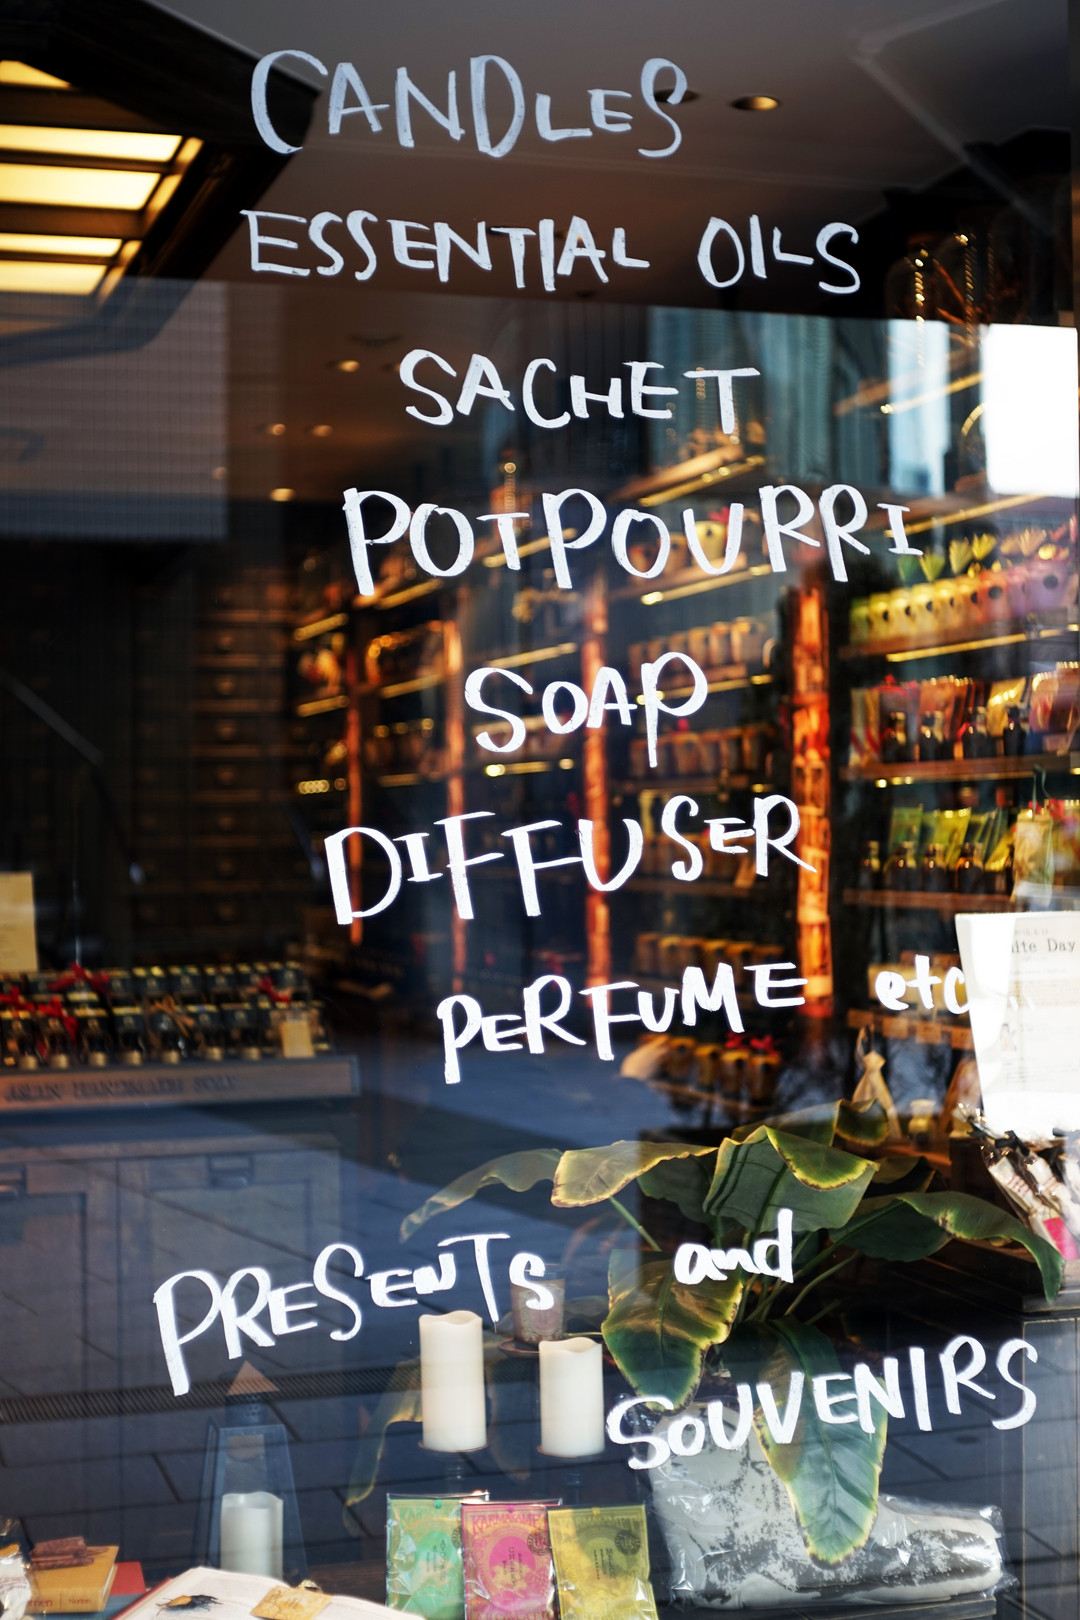 CANDLES
ESSENTIAL OILS
SACHET
POTPOURRI
SOAP
DIFFUSER
PERFUME etc
PRESENTS and
SOUVENIRS
Day
HANDMADE SOAP